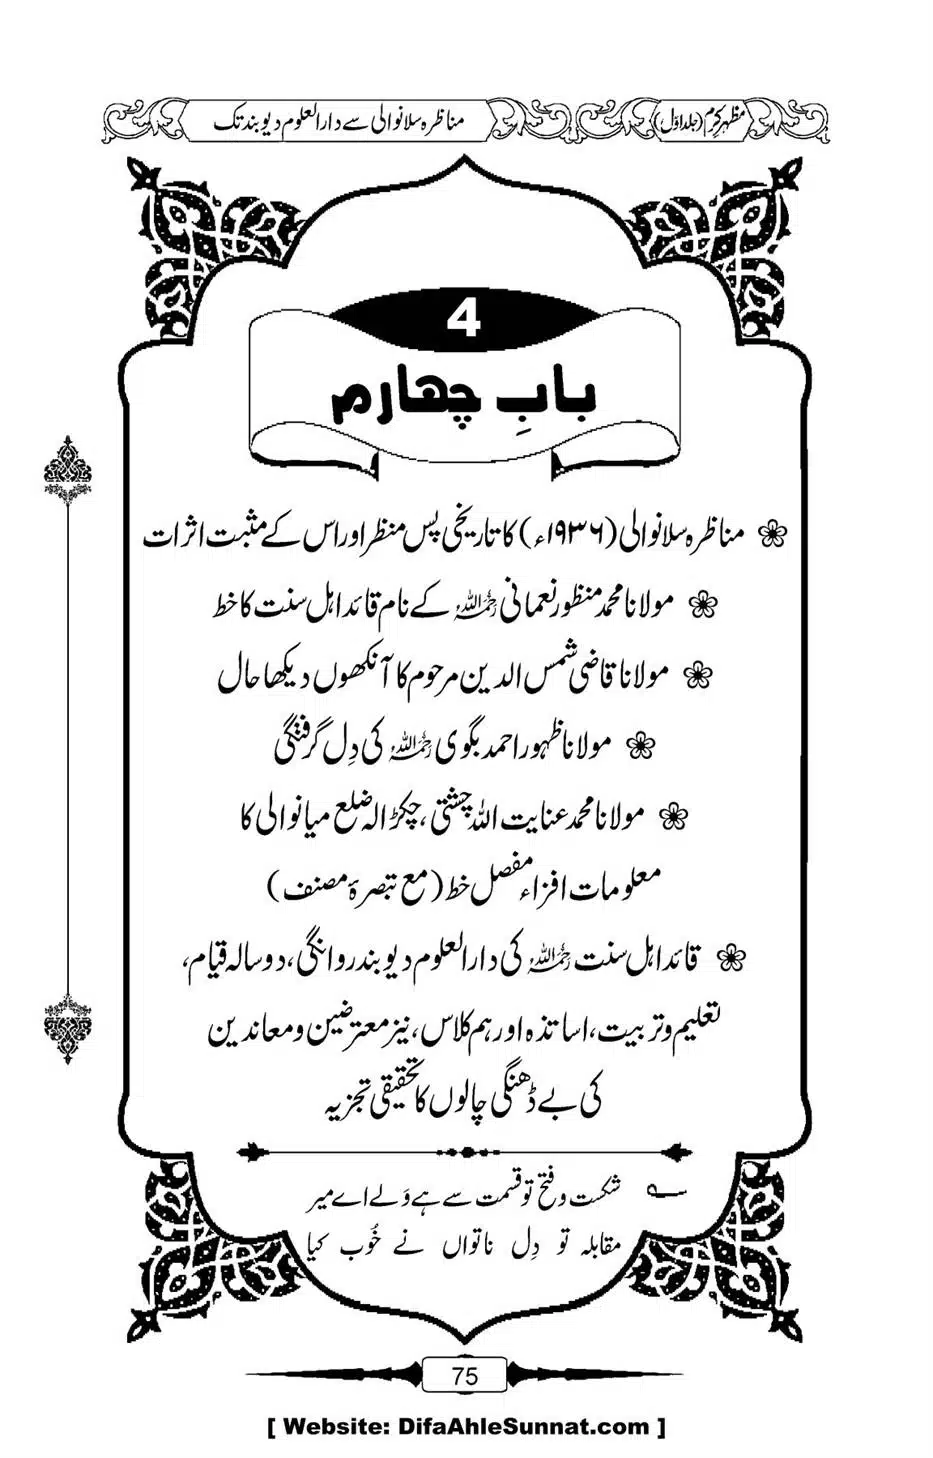 مظہرِ کرم (جلد اوّل) مناظرہ سلانوالی سے دارالعلوم دیوبند تک
4
بابِ چھارم
مناظرہ سلانوالی (۱۹۳۶ء) کا تاریخی پس منظر اور اس کے مثبت اثرات
مولانا محمد منظور نعمانی رحمہ اللہ کے نام قائد اہل سنت کا خط
مولانا قاضی شمس الدین مرحوم کا آنکھوں دیکھا حال
مولانا ظہور احمد بگوی رحمہ اللہ کی دِل گرفتگی
مولانا محمد عنایت اللہ چشتی، چکڑالہ ضلع میانوالی کا
معلومات افزاء مفصل خط (مع تبصرۂ مصنف)
قائد اہل سنت رحمہ اللہ کی دارالعلوم دیوبند روانگی، دو سالہ قیام،
تعلیم و تربیت، اساتذہ اور ہم کلاس، نیز معترضین و معاندین
کی بے ڈھنگی چالوں کا تحقیقی تجزیہ
شکست و فتح تو قسمت سے ہے وَلے اے میر
مقابلہ تو دِل ناتواں نے خُوب کیا
75
[ Website: DifaAhleSunnat.com ]